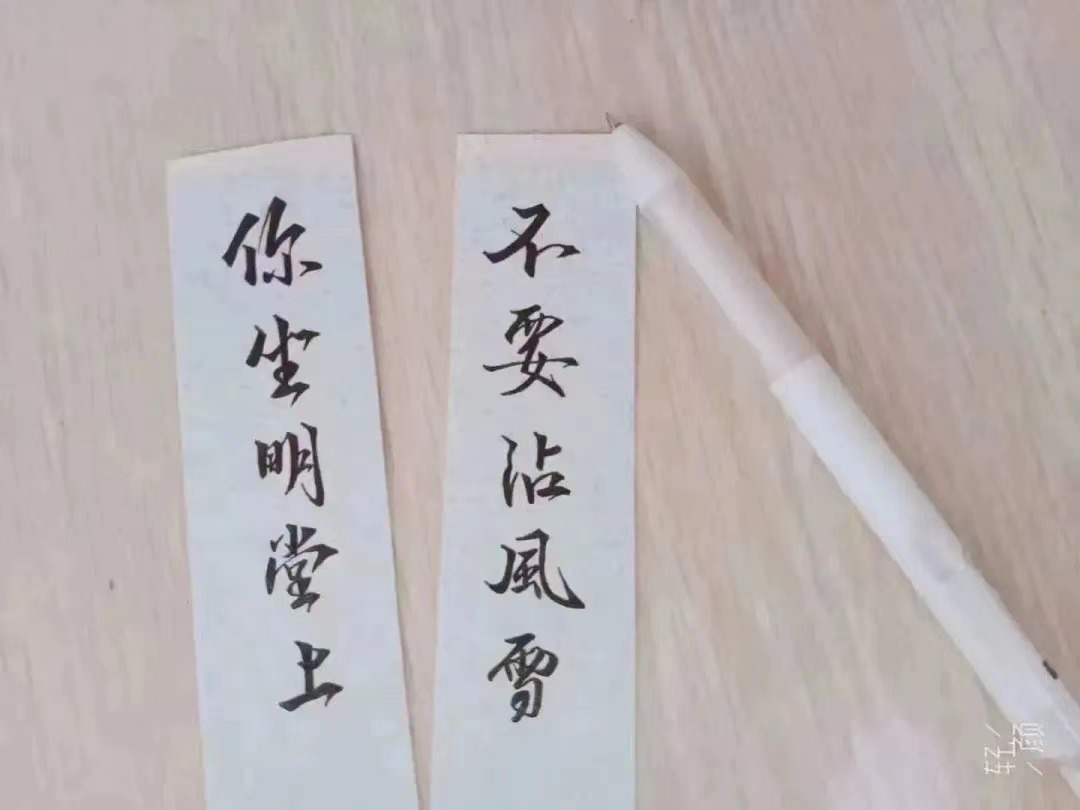 你坐明堂上
不要沾風雪
轻颜